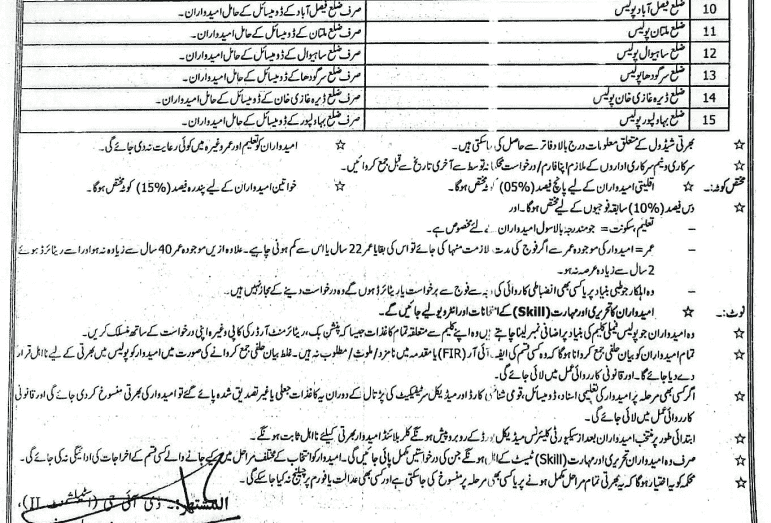 10 ضلع فیصل آباد پولیس صرف ضلع فیصل آباد کے ڈومیسائل کے حامل امیدواران۔
11 ضلع ملتان پولیس صرف ضلع ملتان کے ڈومیسائل کے حامل امیدواران۔
12 ضلع ساہیوال پولیس صرف ضلع ساہیوال کے ڈومیسائل کے حامل امیدواران۔
13 ضلع سرگودھا پولیس صرف ضلع سرگودھا کے ڈومیسائل کے حامل امیدواران۔
14 ضلع ڈیرہ غازی خان پولیس صرف ضلع ڈیرہ غازی خان کے ڈومیسائل کے حامل امیدواران۔
15 ضلع بہاولپور پولیس صرف ضلع بہاولپور کے ڈومیسائل کے حامل امیدواران۔
☆ بھرتی شیڈول کے متعلق معلومات درج بالا دفاتر سے حاصل کی جا سکتی ہیں۔ ☆ امیدواران کو تعلیم اور عمر وغیرہ میں کوئی رعایت نہ دی جائے گی۔
☆ سرکاری و نیم سرکاری اداروں کے ملازم اپنا فارم/درخواست محکمانہ توسط سے آخری تاریخ سے قبل جمع کروائیں۔
مختص کوٹہ:۔ ☆ اقلیتی امیدواران کے لیے پانچ فیصد (05%) کوٹہ مختص ہوگا۔ ☆ خواتین امیدواران کے لیے پندرہ فیصد (15%) کوٹہ مختص ہوگا۔
☆ دس فیصد (10%) سابقہ فوجیوں کے لیے مختص ہوگا۔ اور
– تعلیم، سکونت = جو مندرجہ بالا سول امیدواران کے لئے مخصوص ہے۔
– عمر = امیدوار کی موجودہ عمر سے اگر فوج کی مدت ملازمت منہا کی جائے تو اس کی بقایا عمر 22 سال یا اس سے کم ہونی چاہیے۔ علاوہ ازیں موجودہ عمر 40 سال سے زیادہ نہ ہو اور اسے ریٹائرڈ ہوئے
2 سال سے زیادہ عرصہ نہ ہو۔
– وہ اہلکار جو طبی بنیاد پر یا کسی بھی انضباطی کاروائی کی وجہ سے فوج سے برخواست یا ریٹائرڈ ہوں گے وہ درخواست دینے کے مجاز نہیں ہیں۔
نوٹ:۔ ☆ امیدواران کا تحریری اور مہارت (Skill) کے امتحانات اور انٹرویو لیے جائیں گے۔
☆ وہ امیدواران جو پولیس فیملی کلیم کی بنیاد پر اضافی نمبر لینا چاہتے ہیں وہ اپنے کلیم سے متعلقہ تمام کاغذات جیسا کہ پنشن بک، ریٹائرمنٹ آرڈر کی کاپی وغیرہ اپنی درخواست کے ساتھ منسلک کریں۔
☆ تمام امیدواران کو بیان حلفی جمع کروانا ہوگا کہ وہ کسی قسم کی ایف آئی آر (FIR) یا مقدمہ میں نامزد/ملوث/مطلوب نہ ہیں۔ غلط بیان حلفی جمع کروانے کی صورت میں امیدوار کو پولیس میں بھرتی کے لیے نااہل قرار
دے دیا جائے گا۔ اور قانونی کارروائی عمل میں لائی جائے گی۔
☆ اگر کسی بھی مرحلہ پر امیدوار کی تعلیمی اسناد، ڈومیسائل، قومی شناختی کارڈ اور میڈیکل سرٹیفکیٹ کی پڑتال کے دوران یہ کاغذات جعلی یا غیر تصدیق شدہ پائے گئے تو امیدوار کی بھرتی منسوخ کر دی جائے گی اور قانونی
کارروائی عمل میں لائی جائے گی۔
☆ ابتدائی طور پر منتخب امیدواران بعد از سکیورٹی کلیئرنس میڈیکل بورڈ کے روبرو پیش ہونگے کلر بلائنڈ امیدوار بھرتی کیلئے نااہل ثابت ہونگے۔
☆ صرف وہ امیدواران تحریری اور مہارت (Skill) ٹیسٹ کے اہل ہونگے جن کی درخواستیں مکمل پائی جائیں گی۔ امیدوار کو انتخاب کے مختلف مراحل میں کیے جانے والے کسی قسم کے اخراجات کی ادائیگی نہ کی جائے گی۔
☆ محکمہ کو یہ اختیار ہوگا کہ یہ بھرتی تمام مراحل مکمل ہونے پر یا کسی بھی مرحلہ پر منسوخ کی جا سکتی ہے اور کسی بھی عدالت یا فورم پر چیلنج نہ کیا جا سکے گی۔
المشتہر:۔ ڈی آئی جی (اسٹیبلشمنٹ II)،